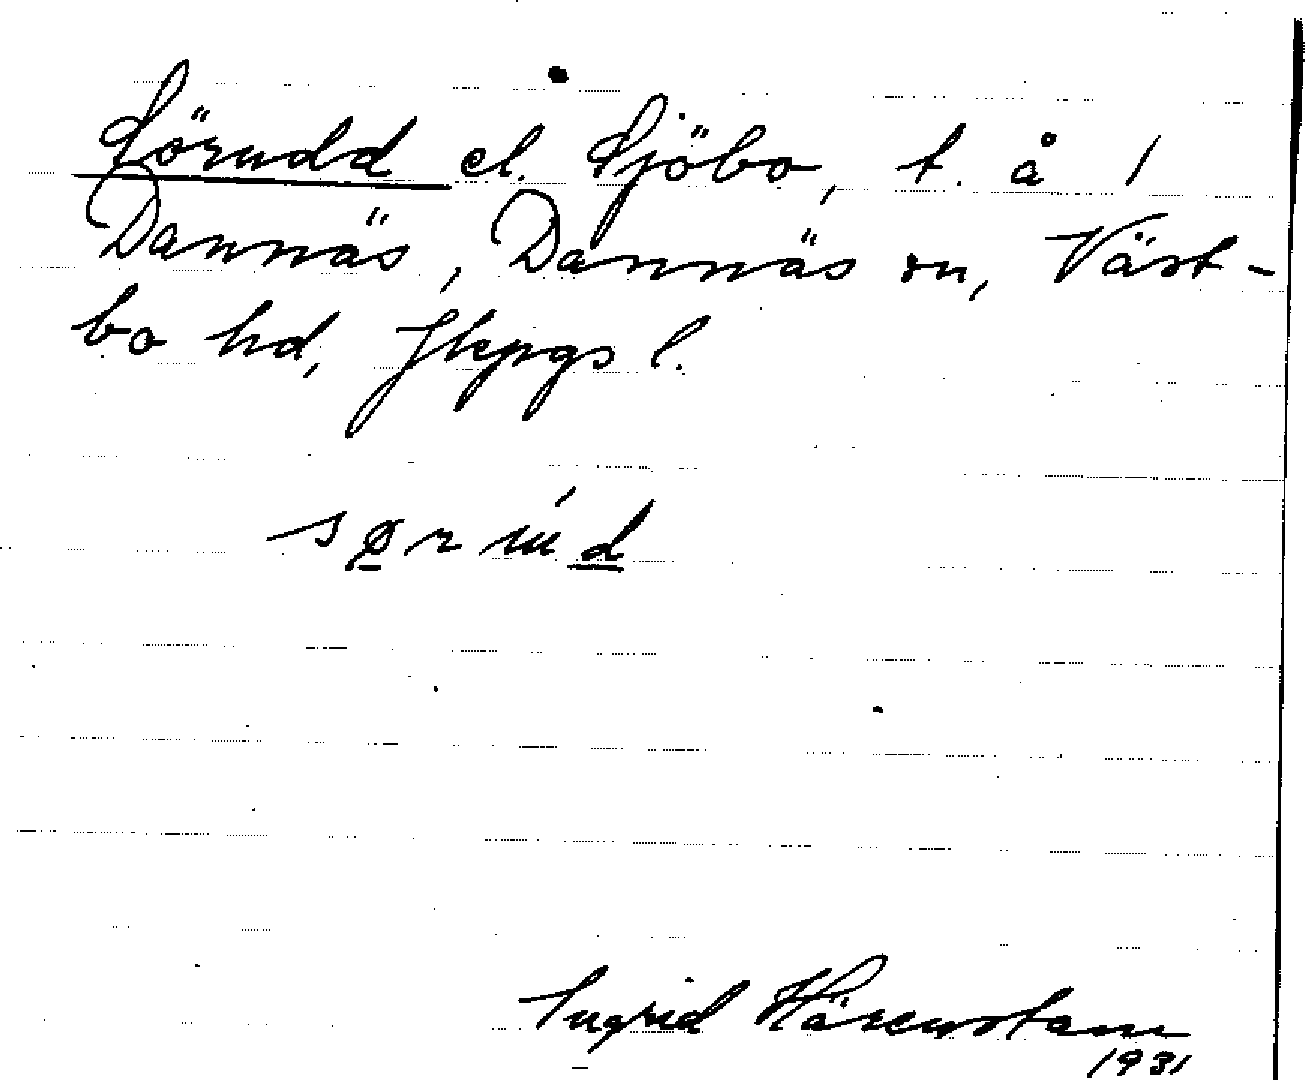 Sörudd el. Sjöbo, t. å 1
Dannäs, Dannäs sn, Väst-
bo hd, Jkpgs l.
sørúd
Ingrid Härenstam
1931